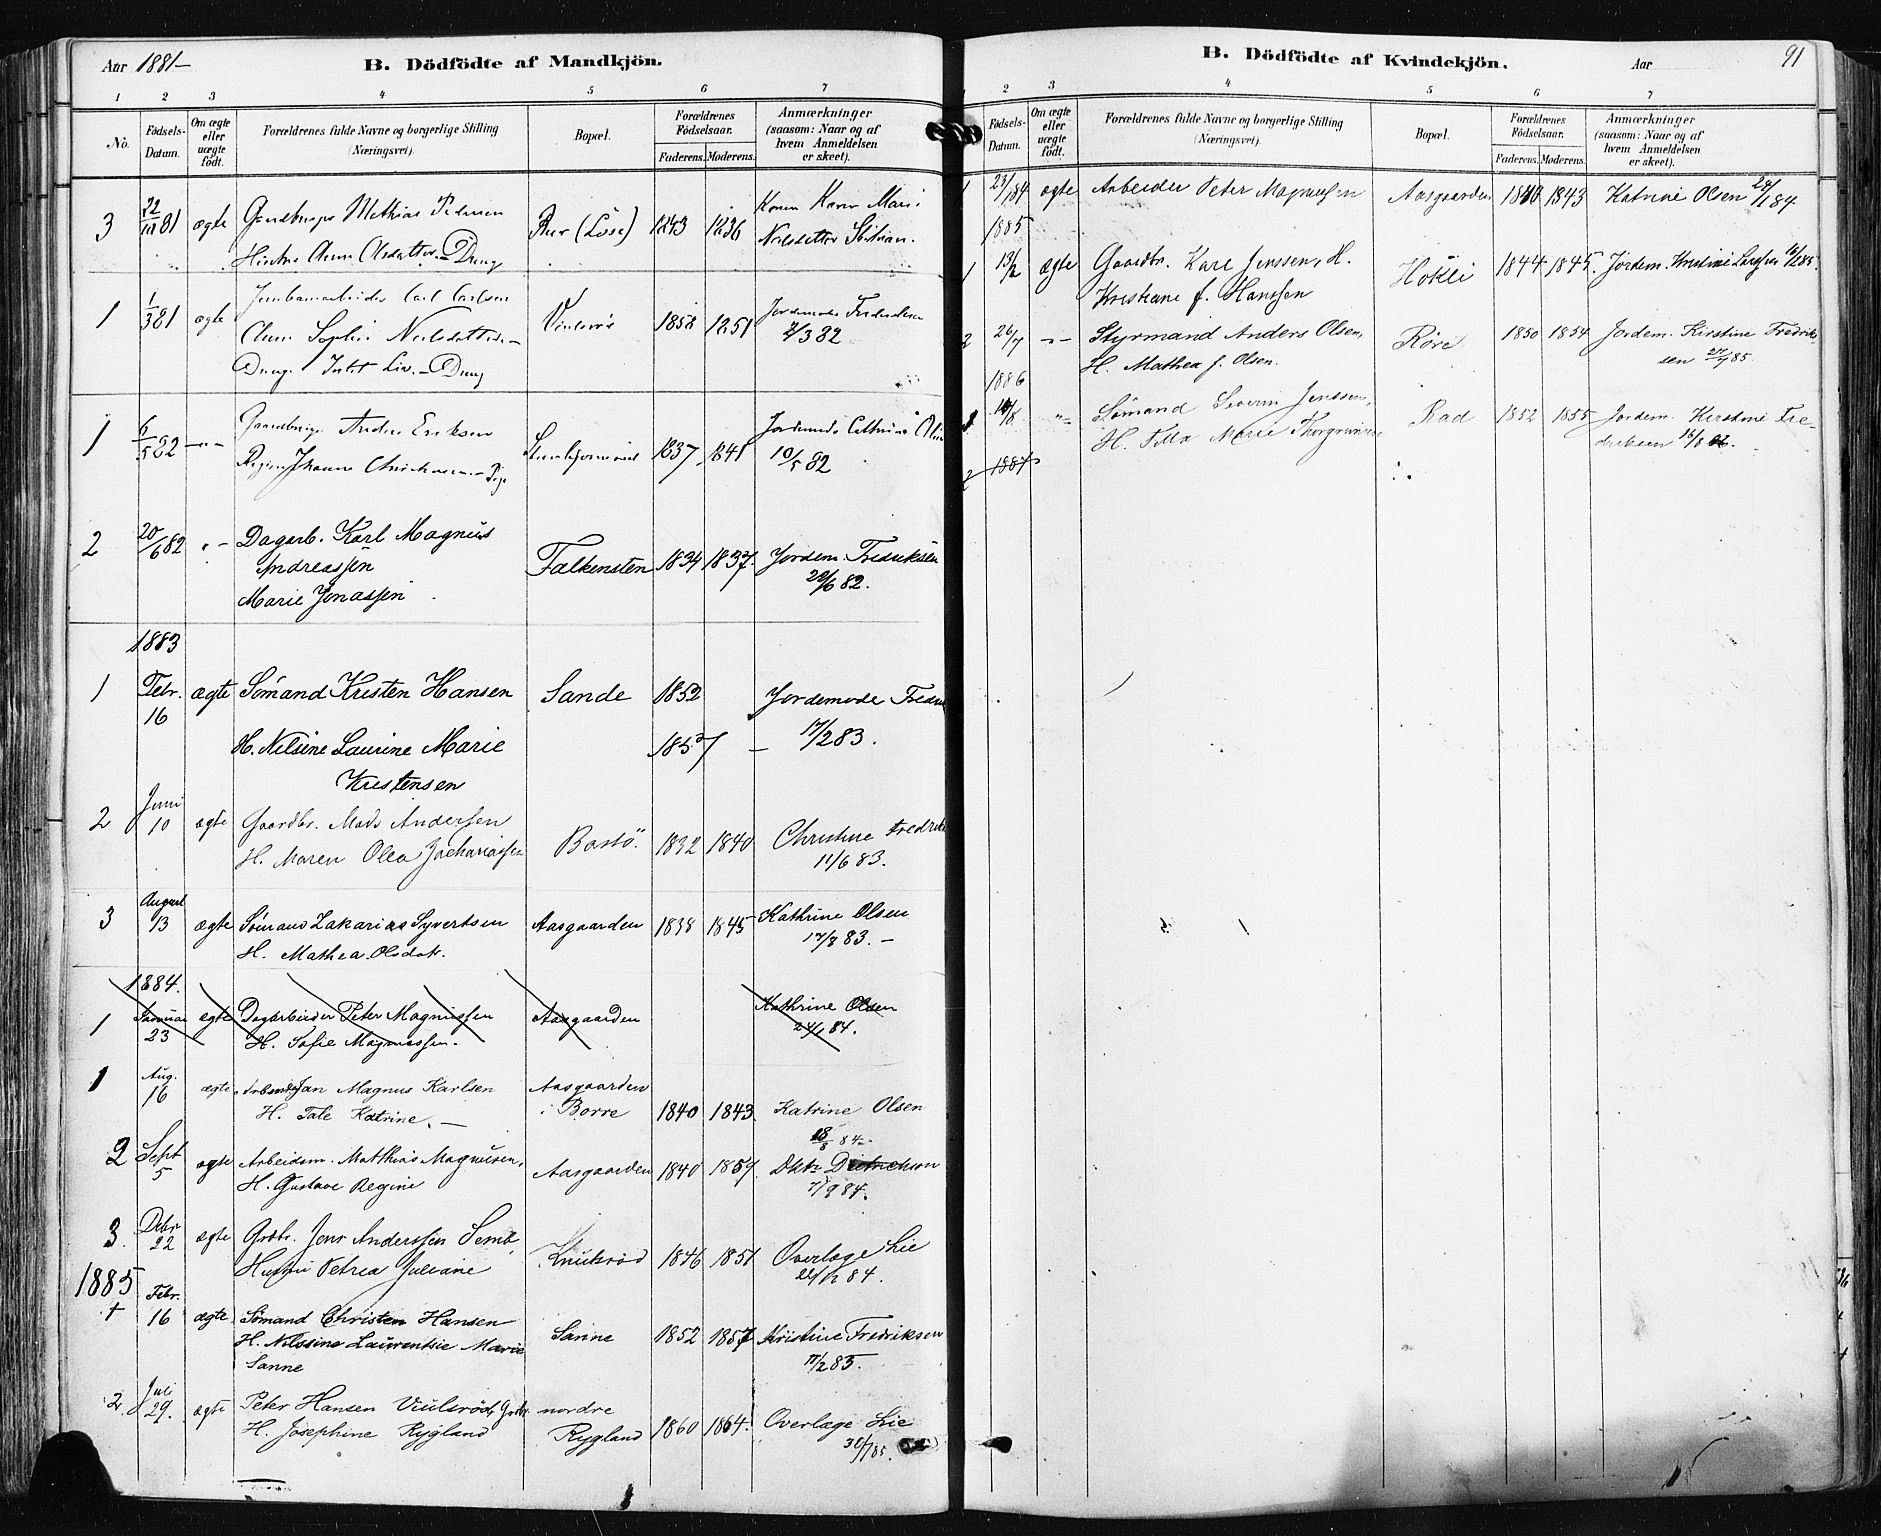 Aar 1881-
B. Dödfödte af Mandkjön.
1 2 3 4 5 6 7
No.
Födsels-Datum.
Om ægte eller uægte födt.
Forældrenes fulde Navne og borgerlige Stilling (Næringsvei).
Bopæl.
Forældrenes Födselsaar.
Faderens. Moderens.
Anmærkninger (saasom: Naar og af hvem Anmeldelsen er skeet).
3 22/10 81 ægte Mathias Pedersen 1843 1836 Karen Marie
Anne Olsdatter
1 1/3 81 ægte Carl Carlsen 1852 1851 Jordemoder
Anne Sophie Neilsdatter 2/3 82
1 6/5 82 -"- Anders Eriksen 1837 1841 Jordemoder
Johanne 10/5 82
2 20/6 82 "- Dagarb. Karl Magnus
Andreassen Falkensten 1834 1837. Jordem. Fredriksen
Marie Jonassen 22/6 82.
1883
1 Febr. 16 ægte Sömand Kristen Hansen Sande 1852 Jordemode
H. Nilsine Laurine Marie 1857 - 17/2 83.
Kristensen
2 Juni 10 ægte Gaardbr. Mads Andersen
H. Maren Olea Zachariassen Bastö 1832 1840 Christine Fredrik
11/6 83.
3 August 13 ægte Sömand Zakarias Syvertsen Aasgaarden 1838 1845 Kathrine Olsen
H. Mathea Olsdat. 17/8 83. -
1884.
1 Januar 23 ægte Dagarbeider Peter Magnussen Aasgaarden Kathrine Olsen
H. Sofie Magnussen. 24/1 84.
1 Aug. 16 ægte Arbeider Jan Magnus Karlsen Aasgaarden
H. Tale Katrine. - i Borre 1840 1843 Katrine Olsen
18/8 84
2 Sept 5 ægte Arbeidsm. Matthias Magnusen, Aasgaarden 1840 1859 Dktr Dietrichson
H. Gustave Regine 7/9 84.
3. Debr 22 ægte Grdbr. Jens Anderssen Semb, Knuksröd 1846 1851 Overlæge Lie
Hustru Petrea Juliane 22/12 84.
1885
1 Febr. 16 ægte Sömand Christen Hansen Sanne 1852 1857 Kristine Fredriksen
H. Nilssine Laurentsie Marie 17/2 85.
Sanne
2. Juli 29. ægte Peter Hansen Viulsröd, Grdbr. nordre
H. Josephine Rygland Rygland 1860 1864. Overlæge Lie
30/7 85.
B. Dödfödte af Kvindekjön.
Aar
91
2 3 4 5 6 7
Födsels-Datum.
Om ægte eller uægte födt.
Forældrenes fulde Navne og borgerlige Stilling (Næringsvei).
Bopæl.
Forældrenes Födselsaar.
Faderens. Moderens.
Anmærkninger (saasom: Naar og af hvem Anmeldelsen er skeet).
1 23/1 84 ægte Arbeider Peter Magnussen Aasgaarden 1843 Katrine Olsen 24/1 84
1885
1 13/2 ægte Gaardbr. Karl Jenssen, H. Hökli 1844 1845. Jordem. Kristine
Kristiane f. Hanssen
2 26/7 -"- Styrmand Anders Olsen, Röre 1850 1854 Jordem. Kirstine Fredrik
H. Mathea f. Olsen. sen 27/7 85.
1886
1. 14/8 "- Sömand Severin Jenssen, Rad 1852 1855 Jordem. Kirstine Fre-
H. Marie driksen 16/8 86.
2 1887